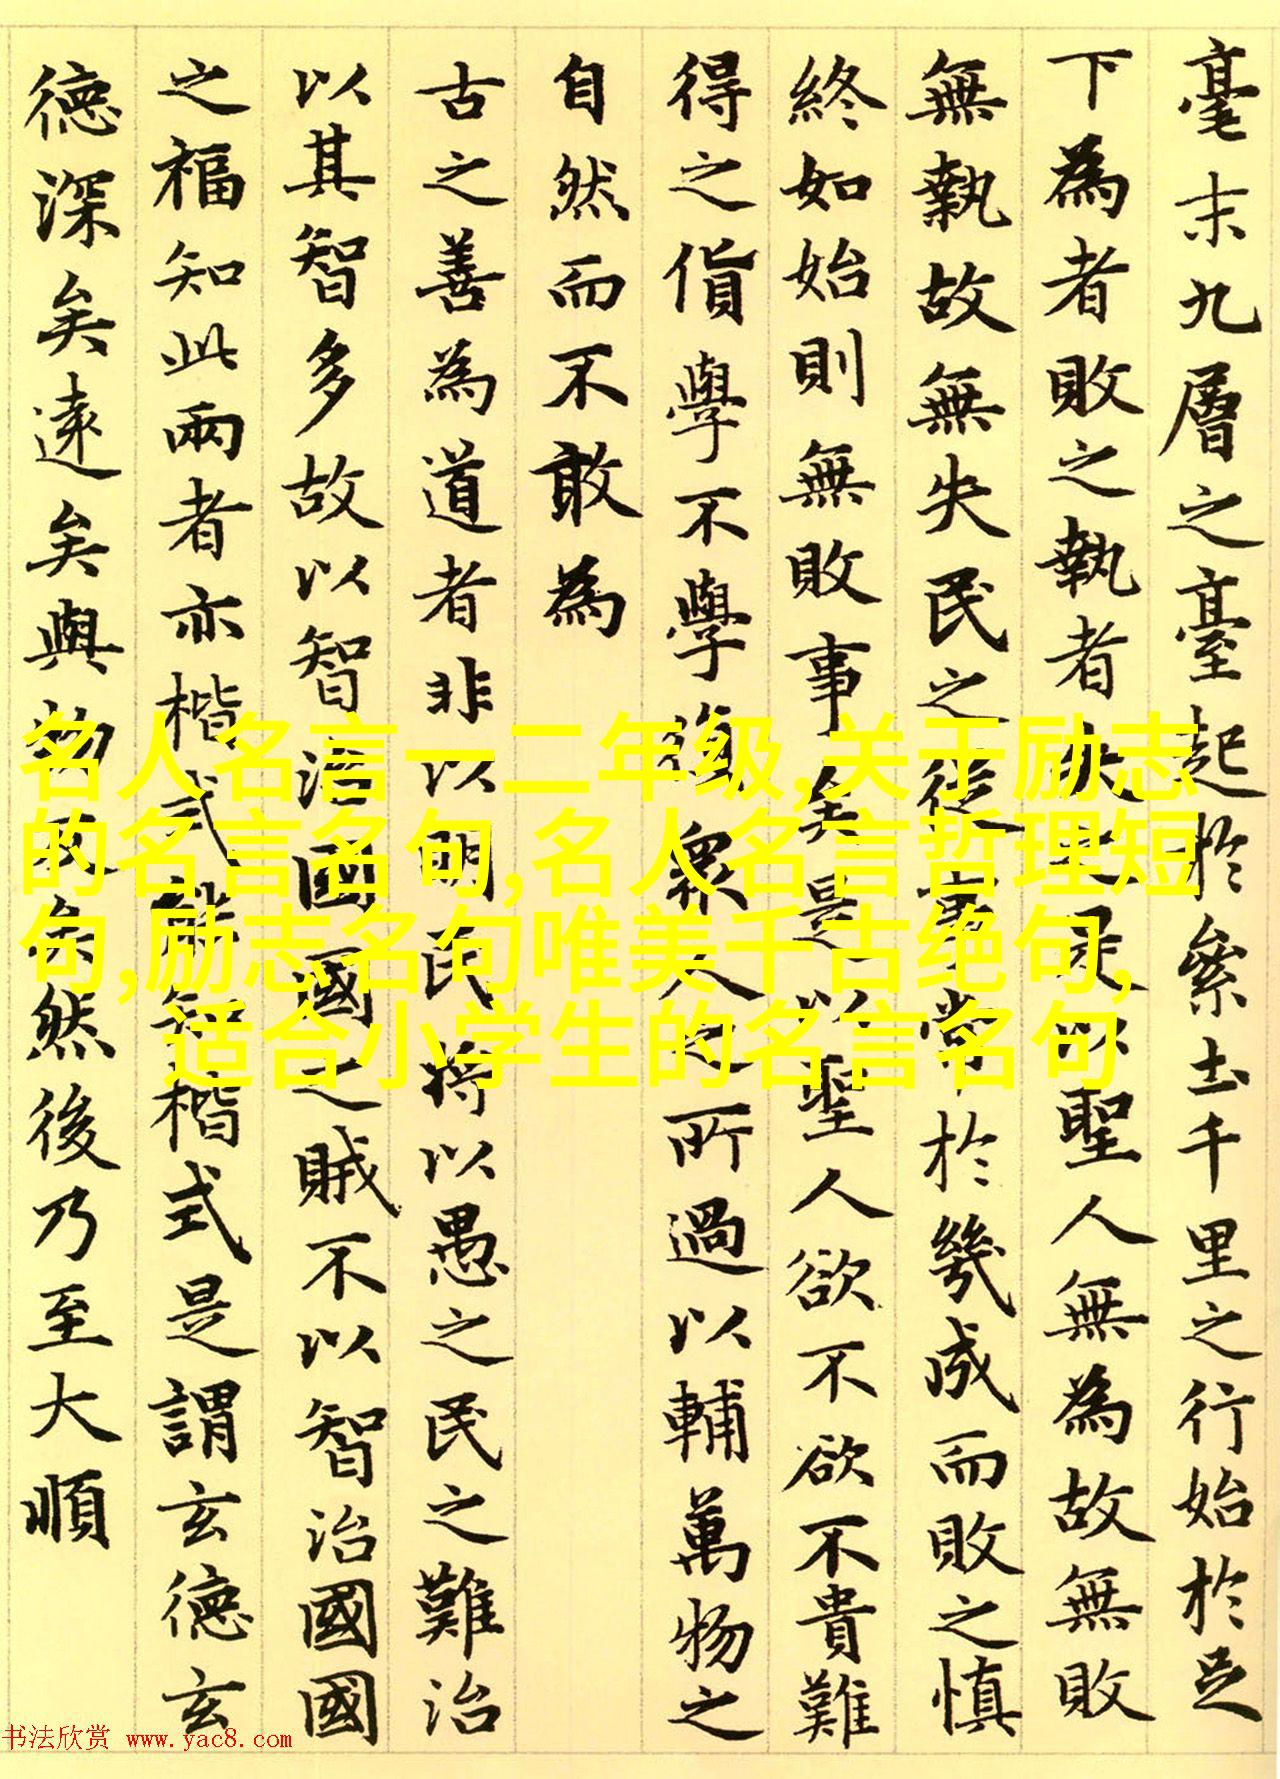 毫末九層之臺起於絫土千里之行始於足
下為者敗之執者失之是以聖人無為故無敗
無執故無失民之從事常於幾成而敗之慎
終如始則無敗事矣是以聖人欲不欲不貴難
得之貨學不學復衆人之所過以輔萬物之
自然而不敢為
古之善為道者非以明民將以愚之民之難治
以其智多故以智治國國之賊不以智治國國
之福知此兩者亦楷式能知楷式是謂玄德玄
德深矣遠矣與物反矣然後乃至大順
名人名言一二年级,关于励志
的名言名句,名人名言哲理短
句,励志名句唯美千古绝句,
适合小学生的名言名句
书法欣赏 www.yac8.com